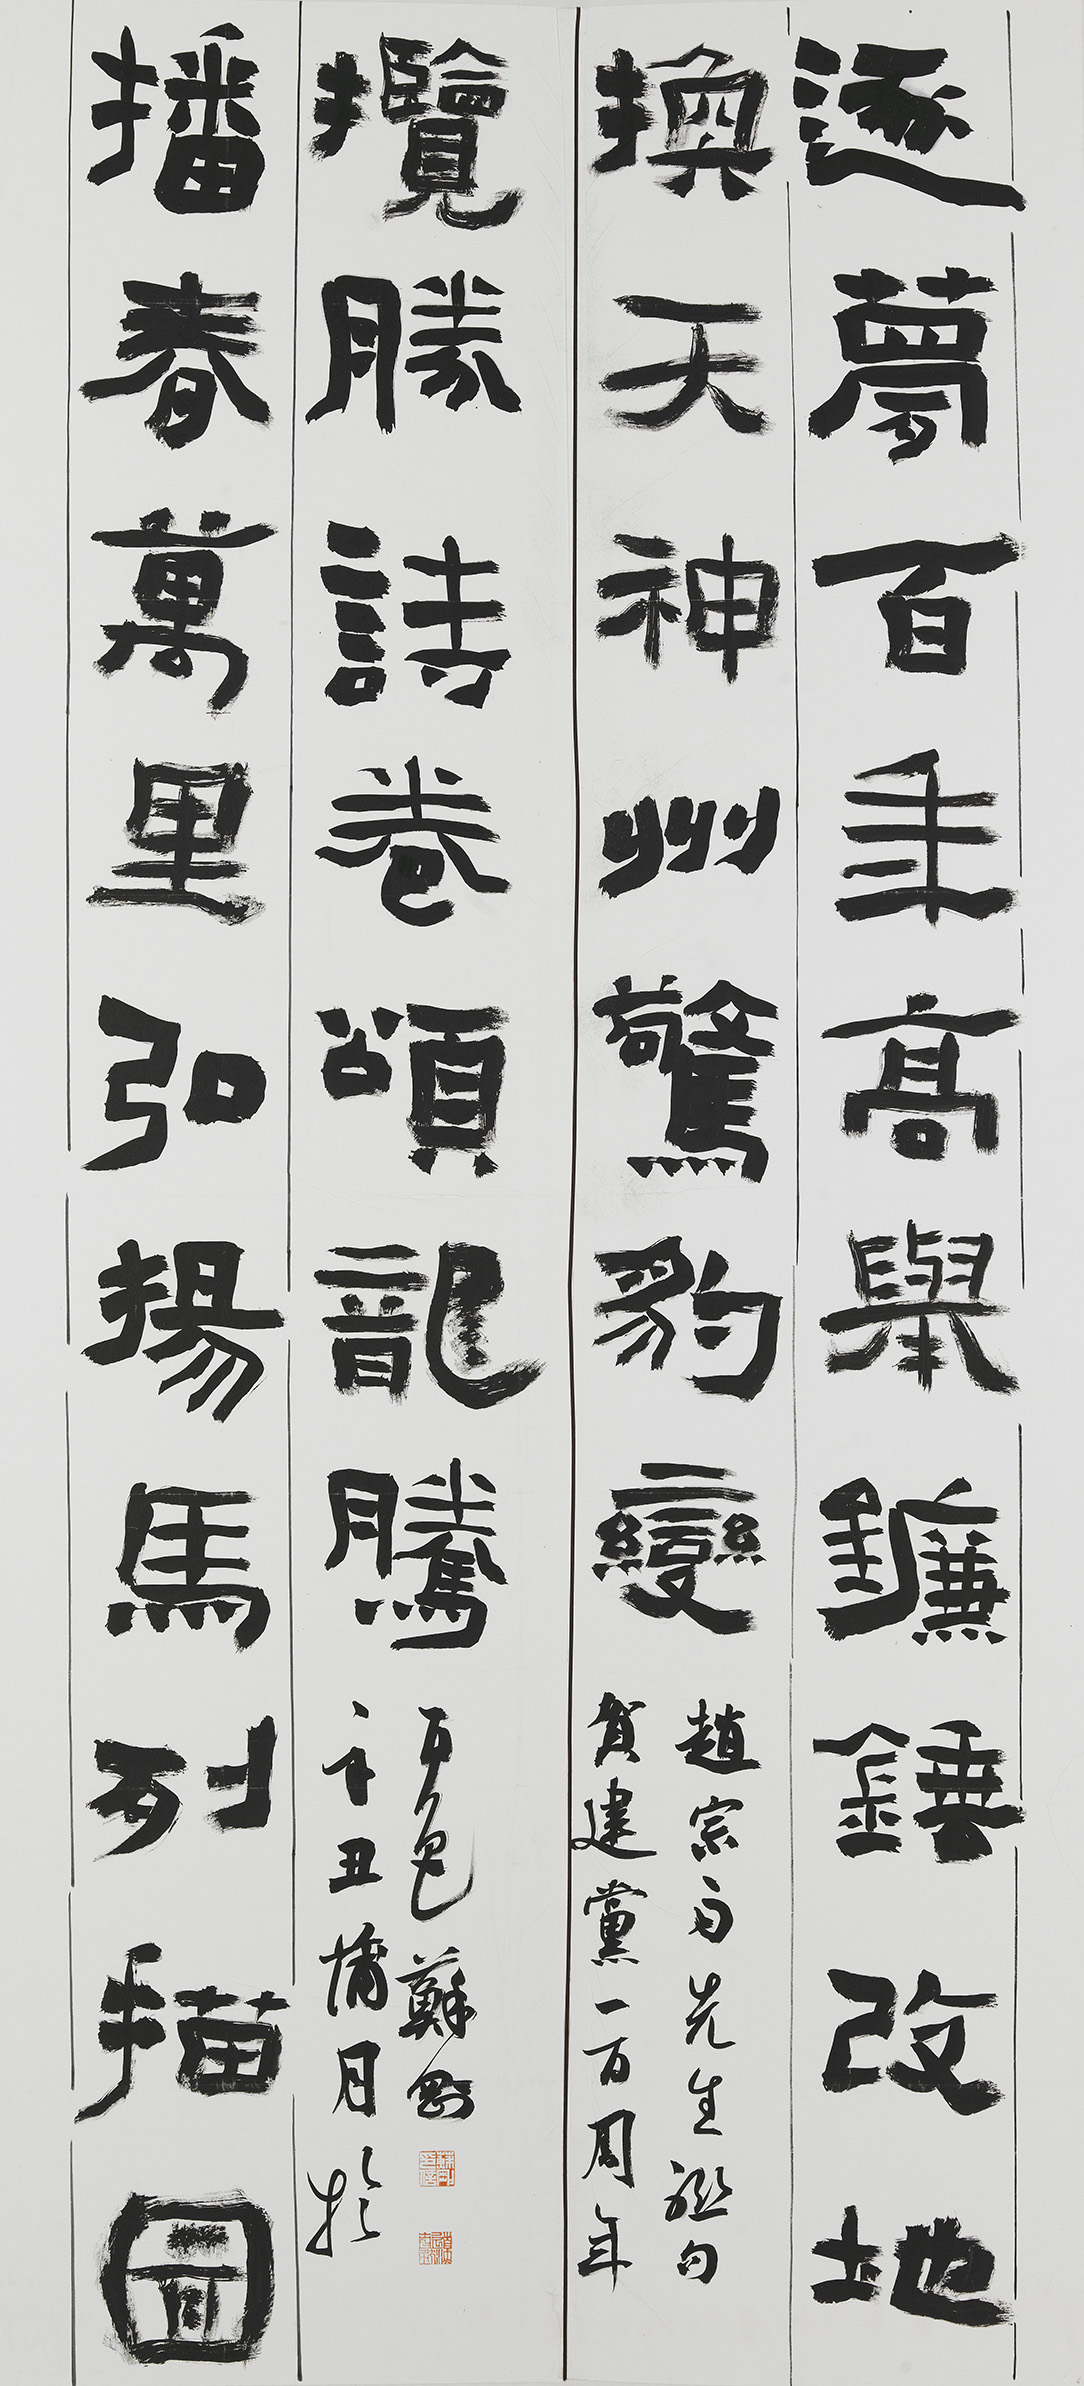 逐夢百年高舉鐮錘改地
換天神州驚豹變
趙宗先生聯句
賀建黨一百周年
播春萬里弘揚馬列描圖
攬勝詩卷頌龍騰
辛丑蒲月於
百色蘇剛